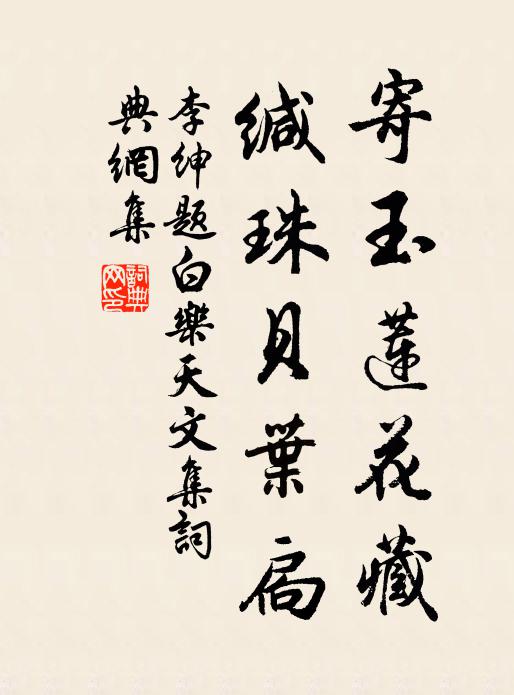 寄玉蓮花藏
緘珠貝葉扃
李紳題白樂天文集詞
典網集
詞典網印